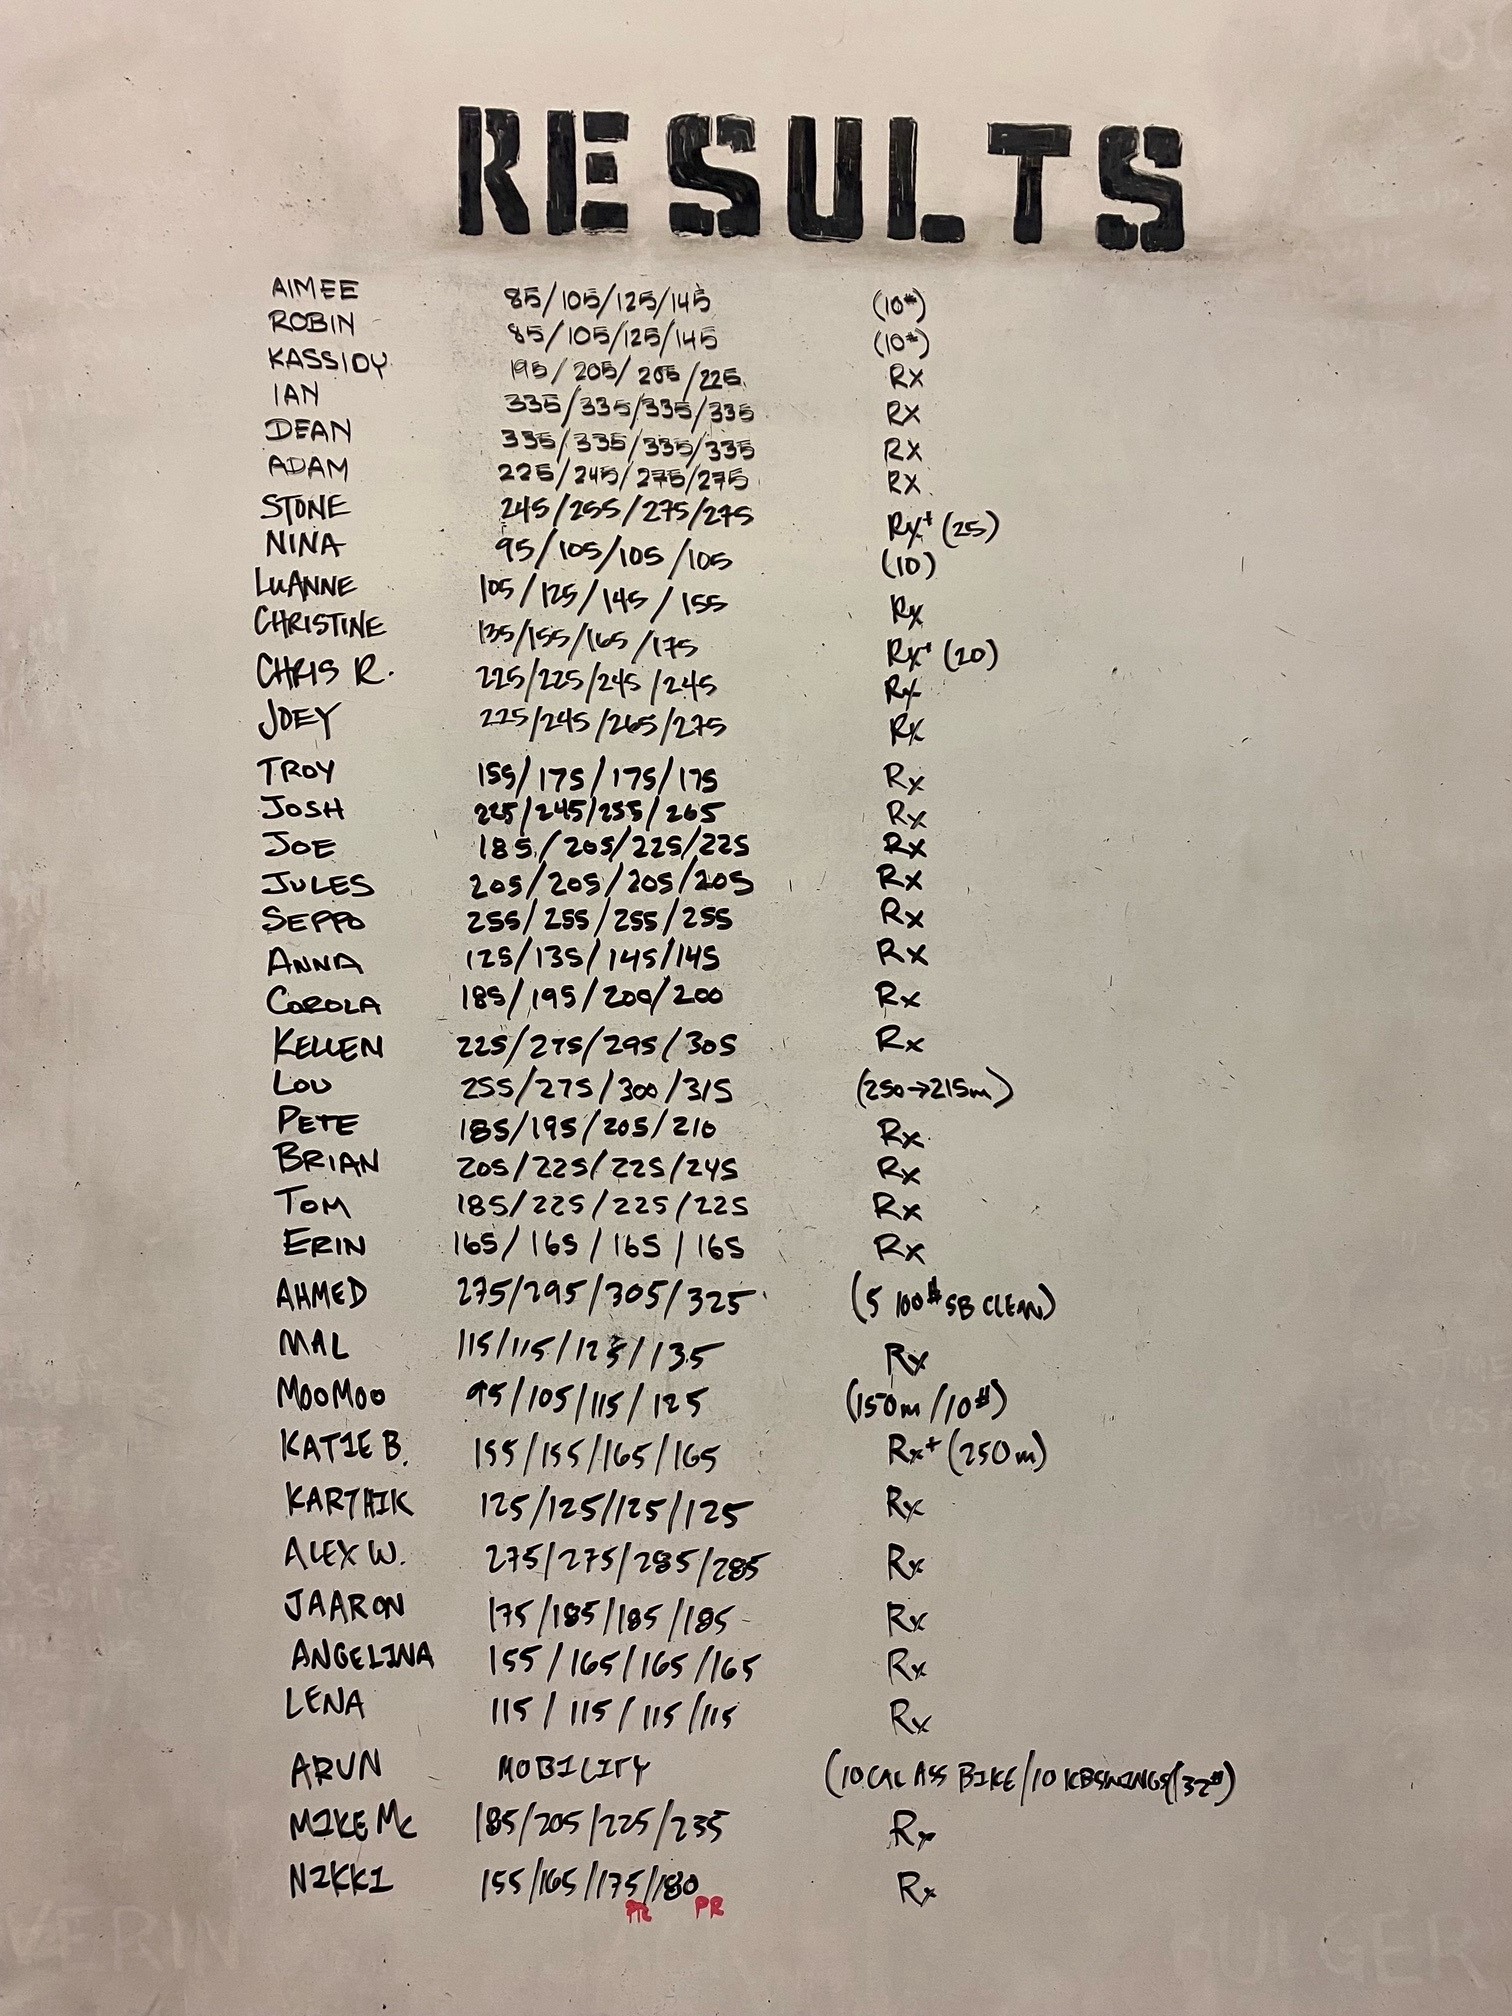 RESULTS
AIMEE 85/105/125/145 (10#)
ROBIN 85/105/125/145 (10#)
KASSIDY 195/205/205/225 RX
IAN 335/335/335/335 RX
DEAN 335/335/335/335 RX
ADAM 225/245/275/275 RX
STONE 245/255/275/275 Rx+ (25)
NINA 95/105/105/105 (10)
LUANNE 105/125/145/155 Rx
CHRISTINE 135/155/165/175 Rx+ (20)
CHRIS R. 225/225/245/245 Rx
JOEY 225/245/265/275 Rx
TROY 155/175/175/175 Rx
JOSH 225/245/255/265 Rx
JOE 185/205/225/225 Rx
JULES 205/205/205/205 Rx
SEPPO 255/255/255/255 Rx
ANNA 125/135/145/145 Rx
COROLA 185/195/200/200 Rx
KELLEN 225/275/295/305 Rx
LOU 255/275/300/315 (250→215m)
PETE 185/195/205/210 Rx
BRIAN 205/225/225/245 Rx
TOM 185/225/225/225 Rx
ERIN 165/165/165/165 Rx
AHMED 275/295/305/325 (5 100# SB CLEAN)
MAL 115/115/125/135 Rx
MOOMOO 95/105/115/125 (150m/10#)
KATIE B. 155/155/165/165 Rx+ (250m)
KARTHIK 125/125/125/125 Rx
ALEX W. 275/275/285/285 Rx
JAARON 175/185/185/185 Rx
ANGELINA 155/165/165/165 Rx
LENA 115/115/115/115 Rx
ARUN MOBILITY (10 CAL ASS BIKE/10 KBSWINGS(32#)
MIKE Mc 185/205/225/235 Rx
NIKKI 155/165/175/180 Rx
PR PR
VERIN BULGER